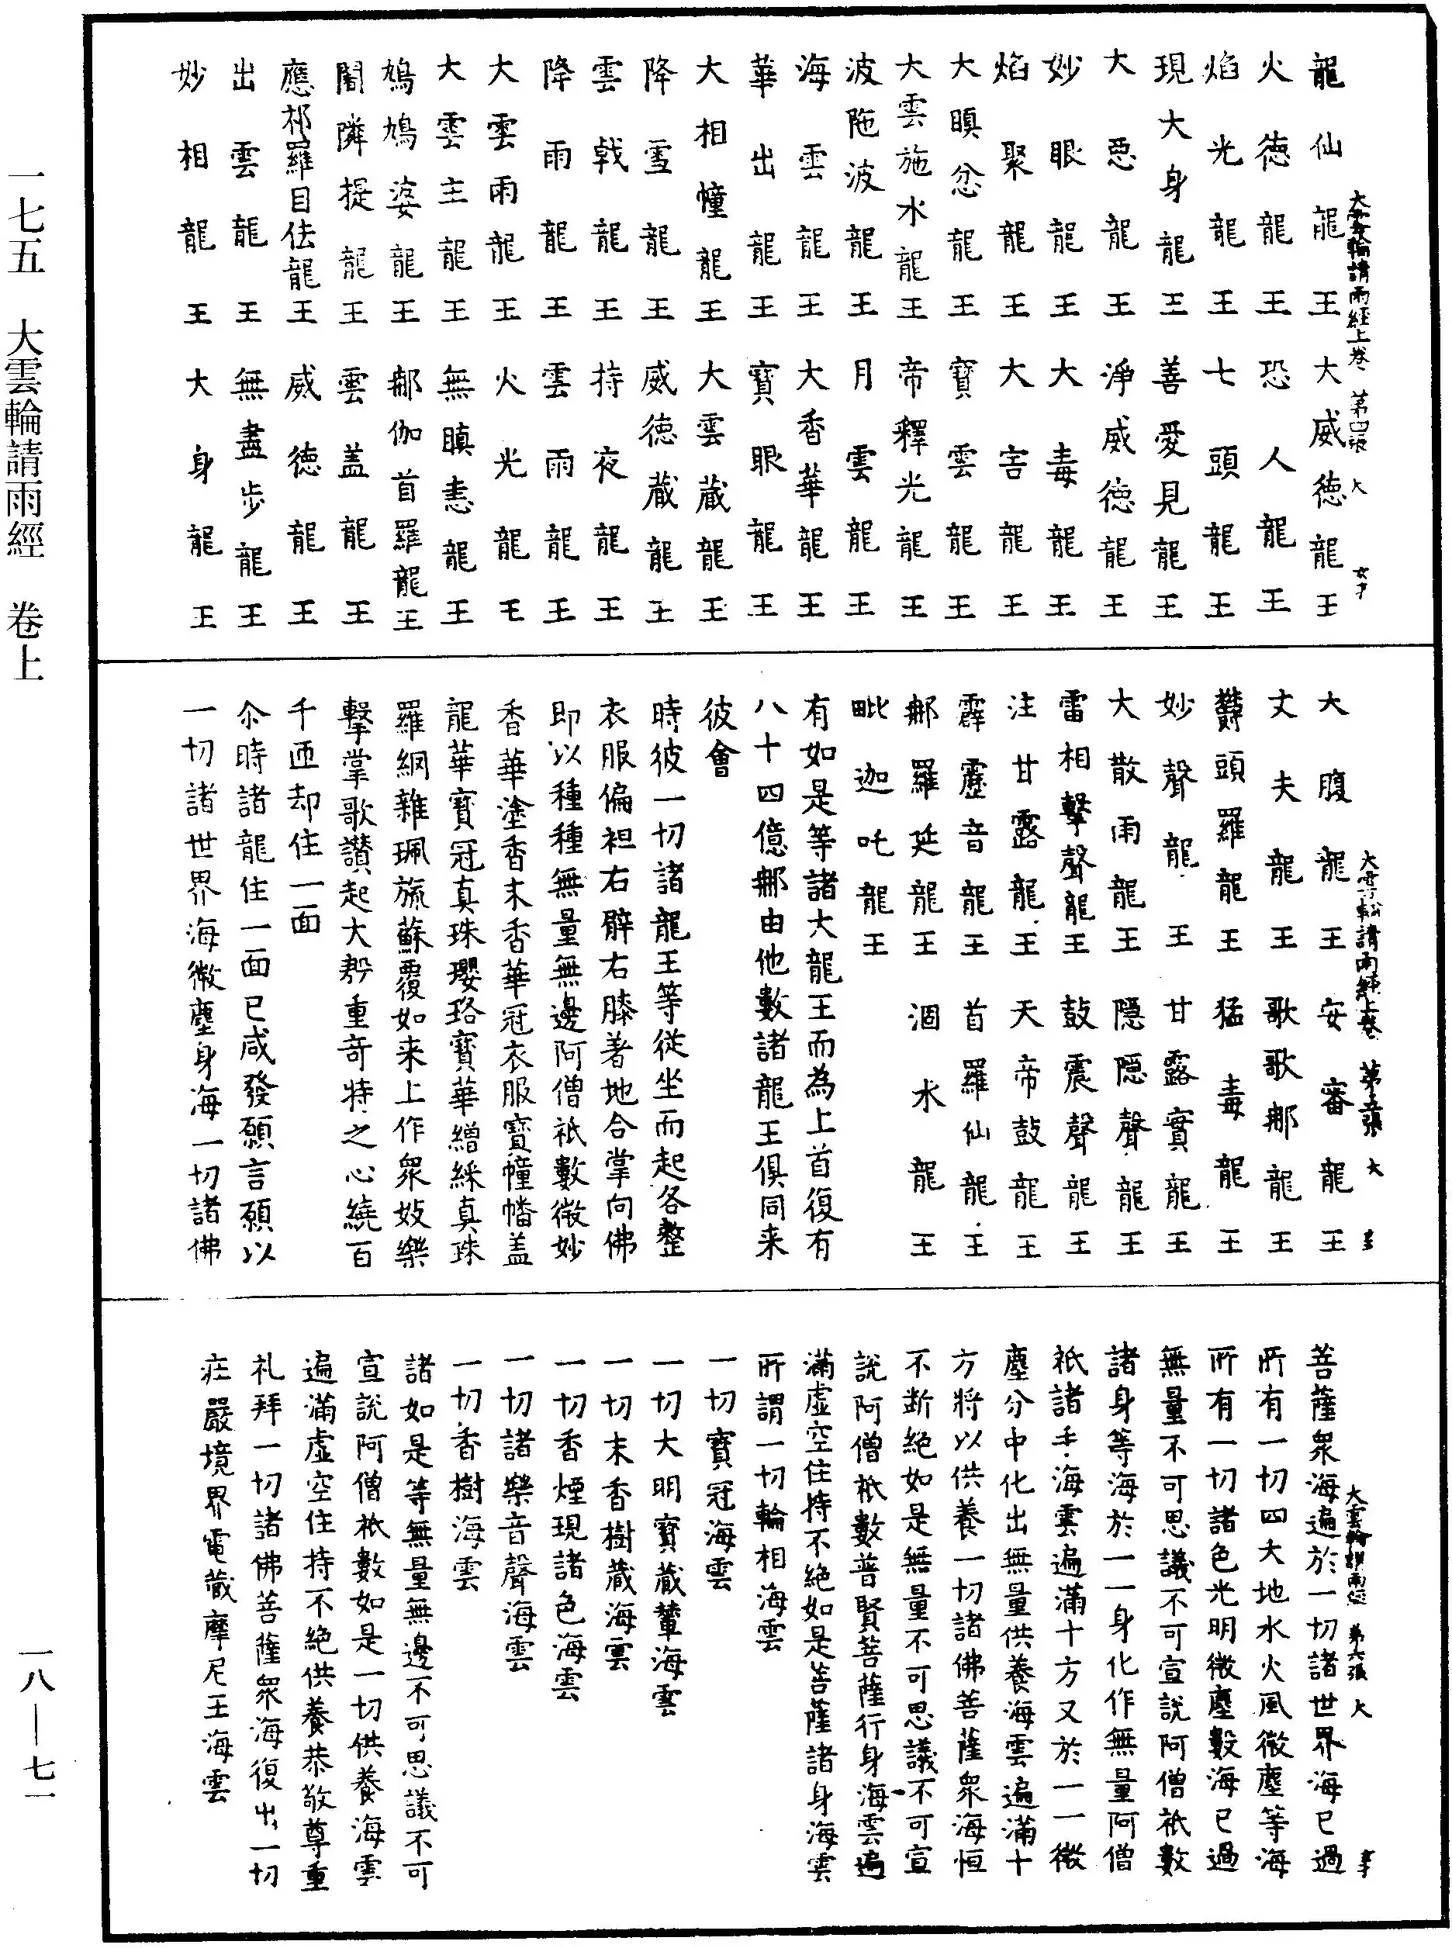 一七五　大雲輪請雨經　卷上
一八—七一
大雲輪請雨經上卷　第四張　大
龍仙龍王大威德龍王
火德龍王恐人龍王
焰光龍王七頭龍王
現大身龍王善愛見龍王
大惡龍王淨威德龍王
妙眼龍王大毒龍王
焰聚龍王大害龍王
大瞋忿龍王寶雲龍王
大雲施水龍王帝釋光龍王
波陁波龍王月雲龍王
海雲龍王大香華龍王
華出龍王寶眼龍王
大相幢龍王大雲藏龍王
降雪龍王威德藏龍王
雲戟龍王持夜龍王
降雨龍王雲雨龍王
大雲雨龍王火光龍王
大雲主龍王無瞋恚龍王
鳩鳩姿龍王那伽首羅龍王
闍隣提龍王雲盖龍王
應祁羅目佉龍王威德龍王
出雲龍王無盡步龍王
妙相龍王大身龍王
大雲輪請雨經上卷　第五張　大
大腹龍王安審龍王
丈夫龍王歌歌那龍王
欝頭羅龍王猛毒龍王
妙聲龍王甘露實龍王
大散雨龍王隱隱聲龍王
雷相擊聲龍王鼓震聲龍王
注甘露龍王天帝鼓龍王
霹靂音龍王首羅仙龍王
那羅延龍王涸水龍王
毗迦吒龍王
有如是等諸大龍王而為上首復有
八十四億那由他數諸龍王俱同来
彼會
時彼一切諸龍王等從坐而起各整
衣服偏袒右臂右膝著地合掌向佛
即以種種無量無邊阿僧祇數微妙
香華塗香末香華冠衣服寶幢幡盖
龍華寶冠真珠瓔珞寶華繒綵真珠
羅網雜珮旒蘇覆如来上作眾妓樂
擊掌歌讚起大㲉重奇特之心繞百
千匝却住一面
尒時諸龍住一面已咸發願言願以
一切諸世界海微塵身海一切諸佛
大雲輪請雨經　第六張　大
菩薩眾海遍於一切諸世界海已過
所有一切四大地水火風微塵等海
所有一切諸色光明微塵數海已過
無量不可思議不可宣說阿僧祇數
諸身等海於一一身化作無量阿僧
祇諸手海雲遍滿十方又於一一微
塵分中化出無量供養海雲遍滿十
方將以供養一切諸佛菩薩眾海恒
不断絶如是無量不可思議不可宣
說阿僧祇數普賢菩薩行身海雲遍
滿虛空住持不絶如是菩薩諸身海雲
所謂一切輪相海雲
一切寶冠海雲
一切大明寶藏輦海雲
一切末香樹藏海雲
一切香煙現諸色海雲
一切諸樂音聲海雲
一切香樹海雲
諸如是等無量無邊不可思議不可
宣說阿僧祇數如是一切供養海雲
遍滿虛空住持不絶供養恭敬尊重
礼拜一切諸佛菩薩眾海復出一切
莊嚴境界電藏摩尼王海雲